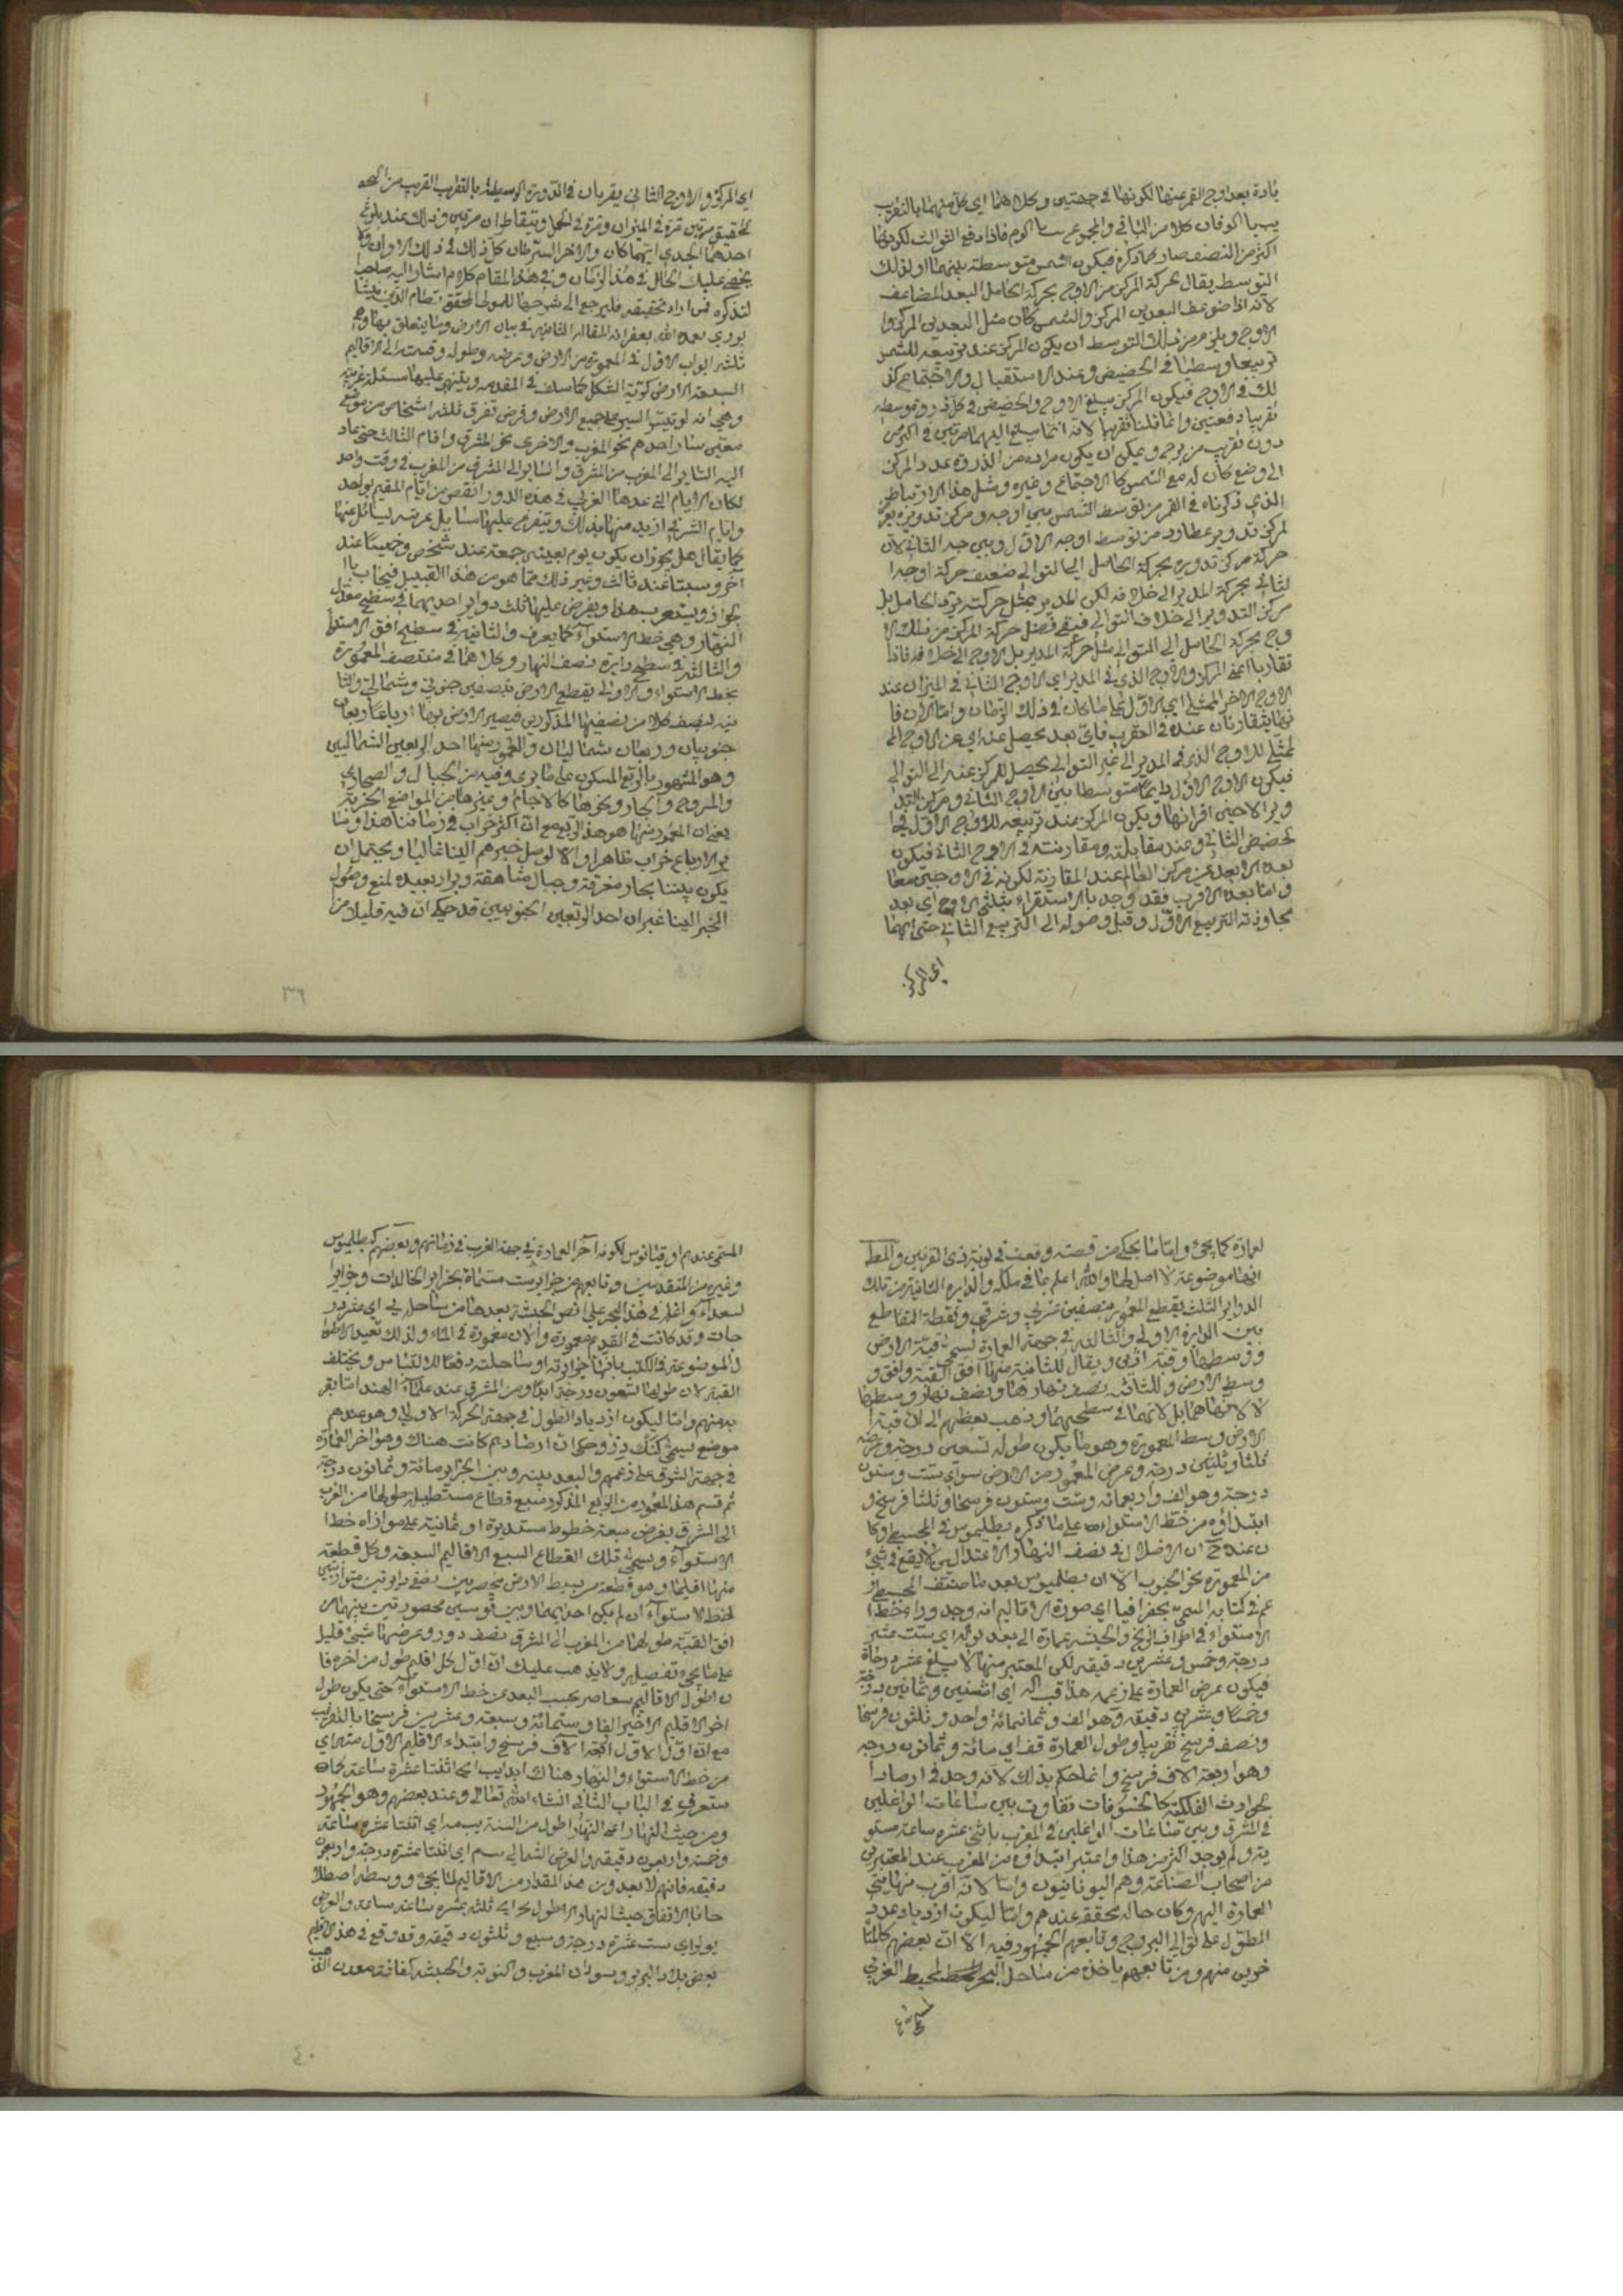 يادة بعد اوج القمر عنها لكونها في جهتين وكلاهما اي كل منهما بالتقريب
اكثر من النصف صار بما ذكره فيكون الشمس متوسطة بينهما اولذلك
التوسط يقال لحركة المركز من الاوج بحركة الحامل البعد المضاعف
لانه اذا ضوعف البعد بين المركز والشمس كان مثل البعد بين المركز وا
لاوج ويلزم من ذلك التوسط ان يكون المركز عند تربيعه للشمس
تربيعا وسطيا في الحضيض وعند الاستقبال والاجتماع كذ
لك في الاوج فيكون المركز يبلغ الاوج والحضيض في كل دورة وسطية
تقريبا دفعتين وانما قلنا تقريبا لانه انما يبلغ اليهما مرتين في اكثر من
دون تقريب من يوم ويمكن ان يكون مراده من الذروة عدد المركز
الى وضع كان له مع الشمس كالاجتماع وغيره ومثل هذا الارتباط
الذي ذكرناه في القمر من توسط الشمس بين اوجه ومركز تدويره يعر
لمركز تدوير عطارد من توسط اوجه الاول وبين اوجه الثاني لان
حركة مركز تدويره بحركة الحامل الى التوالي ضعف حركة اوجه ا
لثاني بحركة المدير الى خلافه لكن المدير بمثل حركته يرد الحامل بل
مركز التدوير الى خلاف التوالي فيبقى فضل حركة المركز من فلك الا
وج بحركة الحامل الى التوالي مثل حركة المدير بل الاوج الى خلافه فاذا
تقاربا اعني المركز والاوج الذي في المدير اي الاوج الثاني في الميزان عند
الاوج الاخر الممثلي اي الاول كما كان في ذلك الزمان واما الان فا
نهما يتقارنان عنده في العقرب فاي بعد يحصل عنه اي عن الاوج الم
لمثلي للاوج الذي في المدير الى غير التوالي يحصل للمركز عنه الى التوالي
فيكون الاوج الاول دائما متوسطا بين الاوج الثاني ومركز التد
وير الا حين اقترانهما ويكون المركز عند تربيعه للاوج الاول في ا
لحضيض الثاني وعند مقابلته ومقارنته في الاوج الثاني فيكون
بعده الابعد عن مركز العالم عند المقارنة لكونه في الاوجين معا
واما بعده الاقرب فقد وجد بالاستقراء بثلثي الاوج اي بعد
مجاوزته التربيع الاول وقبل وصوله الى التربيع الثاني حتى انهما
اي المركز
اي المركز والاوج الثاني يقربان في الدورة الوسطية بالتقريب القريب من التحـ
لحقيق مرتين مرة في الميزان ومرة في الحمل ويتقاطران مرتين وذلك عند بلوغ
احدهما الجدي ايهما كان والاخر السرطان كل ذلك في ذلك الاوان ولا
يخفى عليك الحال في هذا الزمان وفي هذا المقام كلام اشار اليه صاحب ا
لتذكره فمن اراد تحقيقه فليرجع الى شرحها للمولى المحقق نظام الدين النيسا
بوري تغمده الله بغفرانه المقالة الثانية في بيان الارض وما يتعلق بها وهي
ثلثة ابواب الاول في المعمورة من الارض وعرضه وطوله وقسمته الى الاقاليم
السبعة الارض كرية الشكل كما سلف في المقدمة ويبتني عليها مسئلة غريبة
وهي انه لو تيسر السير على جميع الارض وفرض تفرق ثلثة اشخاص من موضع
معين سار احدهم نحو المغرب والاخر نحو المشرق واقام الثالث حتى عاد
اليه السائر الى المغرب من المشرق والسائر الى المشرق من المغرب في وقت واحد
لكان الايام التي عدها الغربي في هذه الدورة انقص من ايام المقيم بواحد
وايام الشرقي ازيد منها بذلك ويتفرع عليها مسائل عرضية يسأل عنها
كما يقال هل يجوز ان يكون يوم بعينه جمعة عند شخص وخميسا عند
آخر وسبتا عند ثالث وغير ذلك مما هو من هذا القبيل فيجاب با
لجواز ويستغرب هذا ويفرض عليها ثلث دوائر احديهما في سطح معدل
النهار وهي خط الاستواء كما يعرف والثانية في سطح افق الاستوا
والثالثة في سطح دايرة نصف النهار وكلاهما في منتصف المعمورة
بخط الاستواء والاولى يقطع الارض بنصفين جنوبي وشمالي والثا
نية ينصف كلا من نصفيها المذكورين فيصير الارض بهما ارباعا ربعان
جنوبيان وربعان شماليان والمعمور منها احد الربعين الشماليين
وهو المشهور بالربع المسكون على ما يرى وفيه من الجبال والصحاري
والمروج والبحار ونحوها كالاجام وغيرها من المواضع الخربة
يعني ان المعمور منها هو هذا الربع مع ان اكثره خراب في زماننا هذا وسا
ير الارباع خراب ظاهرا والا لوصل خبرهم الينا غالبا ويحتمل ان
يكون بيننا بحار مغرقة وجبال شاهقة وبرار بعيدة لمنع وصول
الخبر الينا غير ان احد الربعين الجنوبيين قد حكي ان فيه قليلا من
٣٩
لعمارة كما يجئ واما ما يحكى من قصته وقعت في نوبة ذي القرنين والمطـ
انها موضوعة لا اصل لها والله اعلم بما في ملكه والدايرة الثانية من تلك
الدواير الثلث يقطع المعمور بنصفين غربي وشرقي ونقطة التقاطع
بين الدايرة الاولى والثالثة في جهة العمارة تسمى قبة الارض
ووسطها وقبة ارين ويقال للثانية منها افق القبة وافق و
وسط الارض وللثالثة نصف نهارها ونصف نهار وسطها
لا لانهما هما بل لانهما في سطحيهما وذهب بعضهم الى ان قبة ا
لارض وسط المعمورة وهو ما يكون طوله تسعين درجة وعرضه
ثلثا وثلثين درجة وعرض المعمور من الارض سو اي ست وستون
درجة وهو الف واربعمائة وست وستون فرسخا وثلثا فرسخ و
ابتداؤه من خط الاستواء على ما ذكره بطليموس في المجسطي وكا
ن عنده ح ان الاظلال في نصف النهار الاعتدالين لا يقع في شئ
من المعمورة نحو الجنوب الا ان بطليموس بعد ما صنف المجسطي ز
عم في كتابه المسمى بجغرافيا اي صورة الاقاليم انه وجد وراء خط ا
لاستواء في اطراف الزنج والحبشة عمارة الى بعد يو كه اي ست عشر
درجة وخمس وعشرين دقيقة لكن المعتبر منها لا يبلغ عشر درجات
فيكون عرض العمارة على زعمه هذا فب كه اي اثنين وثمانين درجة
وخمسا وعشرين دقيقة وهو الف وثمانمائة واحد وثلثون فرسخا
ونصف فرسخ تقريبا وطول العمارة قف اي مائة وثمانون درجة
وهو اربعة الاف فرسخ وانما حكم بذلك لانه وجد في ارصاد ا
لحوادث الفلكية كالخسوفات تفاوت بين ساعات الواغلين
في المشرق وبين ساعات الواغلين في المغرب باثني عشرة ساعة مستو
ية ولم يوجد اكثر من هذا واعتبر ابتداؤه من المغرب عند المعتبرين
من اصحاب الصناعة وهم اليونانيون واما لانه اقرب نهايتي
العمارة اليهم وكان حاله محققة عندهم واما ليكون ازدياد عدد
الطول على توالي البروج وتابعهم الجمهور فيه الا ان بعضهم كالمتا
خرين منهم ومن تابعهم ياخذه من ساحل البحر المحيط الغربي
المسمى
المسمى عندهم اوقيانوس لكونه آخر العمارة في جهة الغرب في زمانهم وبعضهم كبطليموس
وغيره من المتقدمين وتابعهم من جزاير ست مسماة بجزاير الخالدات وجزاير ا
لسعداء واغلة في هذا البحر على اقصى الحبشة بعدها من ساحله ي اي عشر در
جات وقد كانت في القديم معمورة والان مغمورة في الماء ولذلك تقيد الاطوا
ل الموضوعة في الكتب بانها جزايرية او ساحلية دفعا للالتباس ويختلف
القبة لان طولها تسعون درجة ابدا ومن المشرق عند علماء الهند اما لقر
به منهم واما ليكون ازدياد الطول في جهة الحركة الاولى وهو عندهم
موضع يسمى كنك دز وحكي ان ارصادهم كانت هناك وهو اخر العمارة
في جهة الشرق على زعمهم والبعد بينه وبين الجزاير مائة وثمانون درجة
ثم قسم هذا المعمور من الربع المذكور سبع قطاع مستطيلة طولها من الغرب
الى الشرق بفرض سبعة خطوط مستديرة او ثمانية على موازاة خط ا
لاستواء ويسمى تلك القطاع السبع الاقاليم السبعة وكل قطعة
منها اقليما وهو قطعة من بسيط الارض منحصر بين نصفي دايرتين متوازيتين
لخط الاستواء ان لم يكن احديهما وبين قوسين محصورتين بينهما من
افق القبة طولها من المغرب الى المشرق نصف دور وعرضها شئ قليل
على ما يجئ تفصيله ولا يذهب عليك ان اول كل اقليم طول من اخره فا
ن اطول الاقاليم متعاصر بحسب البعد عن خط الاستواء حتى يكون طول
اخر الاقليم الاخير الفا وستمائة وسبعة وعشرين فرسخا بالتقريب
مع ان اول الاول اربعة الاف فرسخ وابتداء الاقليم الاول منه اي
من خط الاستواء والنهار هناك ابدا يب اي اثنتا عشرة ساعة كما
ستعرفه في الباب الثاني ان شاء الله تعالى وعند بعضهم وهو الجمهور
ومن حيث النهار اعني النهار اطول من السنة يب مه اي اثنتا عشرة ساعة
وخمسة واربعون دقيقة والعرض الشمالي يب م اي اثنتا عشرة درجة واربعون
دقيقة فانهم لا يعدون هذا المقدار من الاقاليم لما يجئ ووسطه اصطلا
حا بالاتفاق حيث النهار الاطول يج اي ثلثة عشرة ساعة سائر والعرض
يو لز اي ست عشرة درجة وسبع وثلثون دقيقة وقد وقع في هذا الاقليم
بعض بلاد البربر وسودان المغرب والنوبة والحبشة كغانة ومعدن الذهب
٤٠